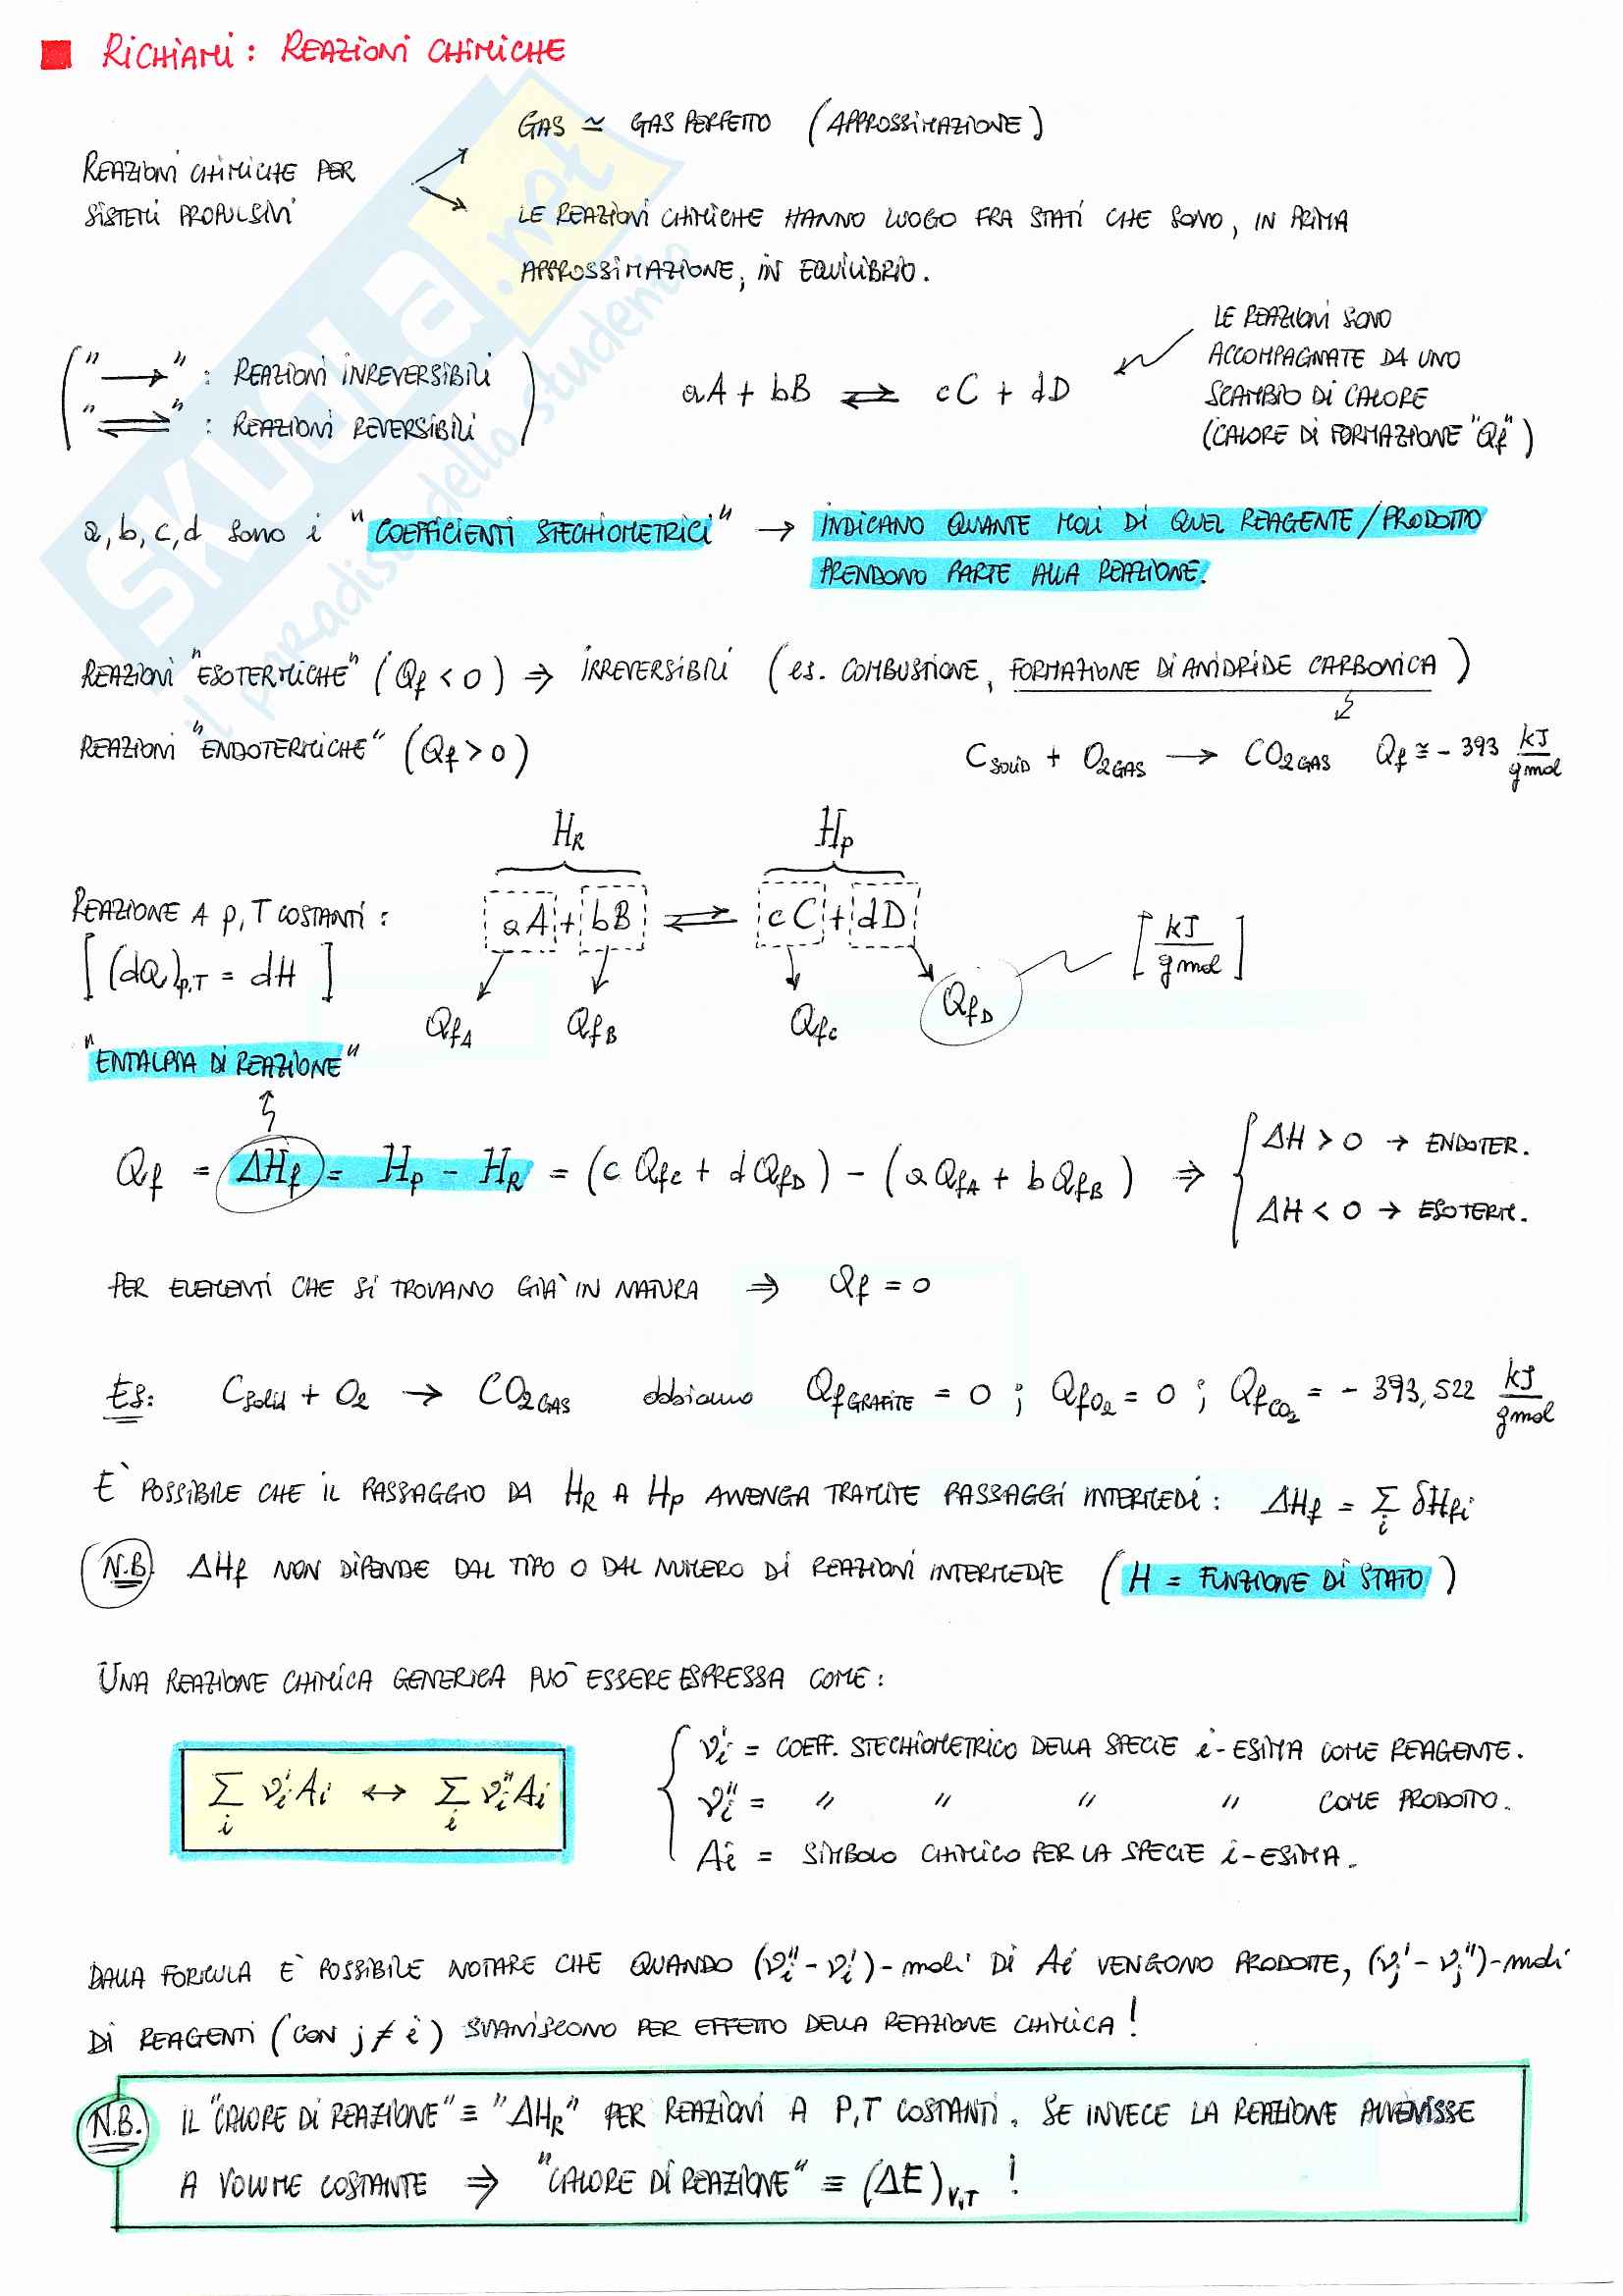 RICHIAMI: REAZIONI CHIMICHE
GAS ≃ GAS PERFETTO (APPROSSIMAZIONE)
REAZIONI CHIMICHE PER
SISTEMI PROPULSIVI
LE REAZIONI CHIMICHE HANNO LUOGO FRA STATI CHE SONO, IN PRIMA
APPROSSIMAZIONE, IN EQUILIBRIO.
LE REAZIONI SONO
ACCOMPAGNATE DA UNO
SCAMBIO DI CALORE
(CALORE DI FORMAZIONE "Qf")
("→" : REAZIONI IRREVERSIBILI
"⇌" : REAZIONI REVERSIBILI)
aA + bB ⇌ cC + dD
a, b, c, d sono i "COEFFICIENTI STECHIOMETRICI" → INDICANO QUANTE MOLI DI QUEL REAGENTE/PRODOTTO
PRENDONO PARTE ALLA REAZIONE.
REAZIONI "ESOTERMICHE" (Qf < 0) ⇒ IRREVERSIBILI (es. COMBUSTIONE, FORMAZIONE DI ANIDRIDE CARBONICA)
REAZIONI "ENDOTERMICHE" (Qf > 0)
C SOLID + O2 GAS → CO2 GAS Qf ≅ - 393 kJ/gmol
HR HP
REAZIONE A p,T COSTANTI : aA + bB ⇌ cC + dD
[(dQ)p,T = dH]
QfA QfB QfC QfD [kJ/gmol]
"ENTALPIA DI REAZIONE"
Qf = ΔHf = HP - HR = (c QfC + d QfD) - (a QfA + b QfB) ⇒ { ΔH > 0 → ENDOTER.
ΔH < 0 → ESOTERM.
PER ELEMENTI CHE SI TROVANO GIA' IN NATURA ⇒ Qf = 0
ES: C solid + O2 → CO2 GAS abbiamo Qf GRAFITE = 0 ; Qf O2 = 0 ; Qf CO2 = - 393,522 kJ/gmol
E' POSSIBILE CHE IL PASSAGGIO DA HR A HP AVVENGA TRAMITE PASSAGGI INTERMEDI : ΔHf = Σi δHfi
N.B. ΔHf NON DIPENDE DAL TIPO O DAL NUMERO DI REAZIONI INTERMEDIE (H = FUNZIONE DI STATO)
UNA REAZIONE CHIMICA GENERICA PUO' ESSERE ESPRESSA COME :
Σi νi' Ai ↔ Σi νi'' Ai
νi' = COEFF. STECHIOMETRICO DELLA SPECIE i-ESIMA COME REAGENTE.
νi'' = " " " " COME PRODOTTO.
Ai = SIMBOLO CHIMICO PER LA SPECIE i-ESIMA.
DALLA FORMULA E' POSSIBILE NOTARE CHE QUANDO (νi'' - νi')-moli DI Ai VENGONO PRODOTTE, (νj' - νj'')-moli
DI REAGENTI (CON j ≠ i) SVANISCONO PER EFFETTO DELLA REAZIONE CHIMICA!
N.B. IL "CALORE DI REAZIONE" ≡ "ΔHR" PER REAZIONI A P,T COSTANTI. SE INVECE LA REAZIONE AVVENISSE
A VOLUME COSTANTE ⇒ "CALORE DI REAZIONE" ≡ (ΔE)V,T !
SKUOLA.net
il paradiso dello studente